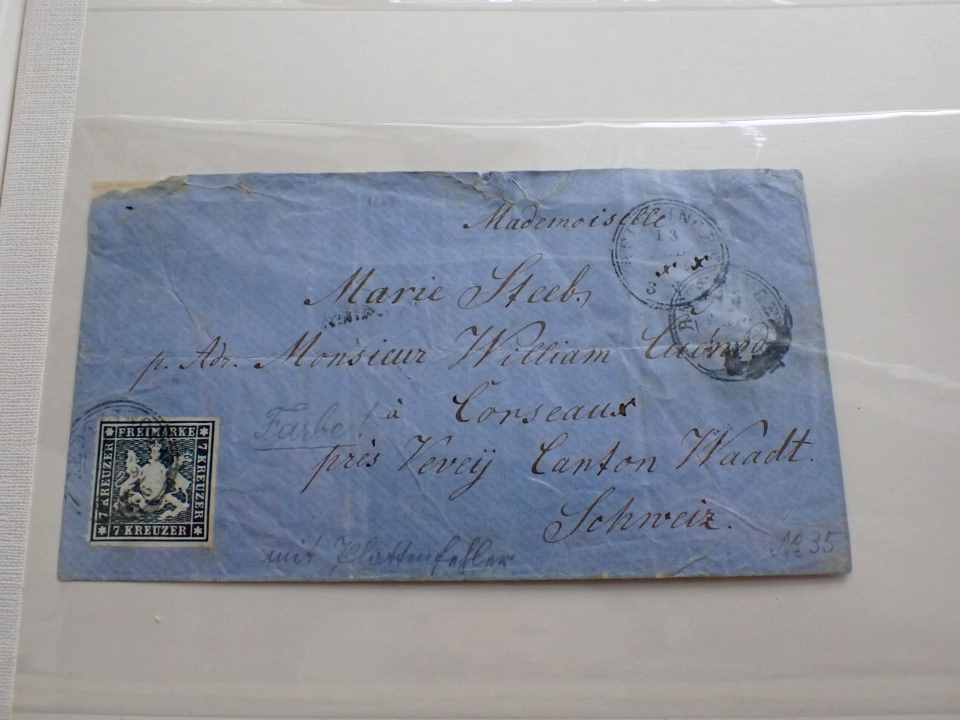 Mademoiselle
Marie Steeb,
p. Adr. Monsieur William
à Corseaux
près Veveÿ Canton Waadt.
Schweiz.
Farbe!
mit Plattenfehler
No 35
13
3
FREIMARKE
7 KREUZER
7 KREUZER
7 KREUZER